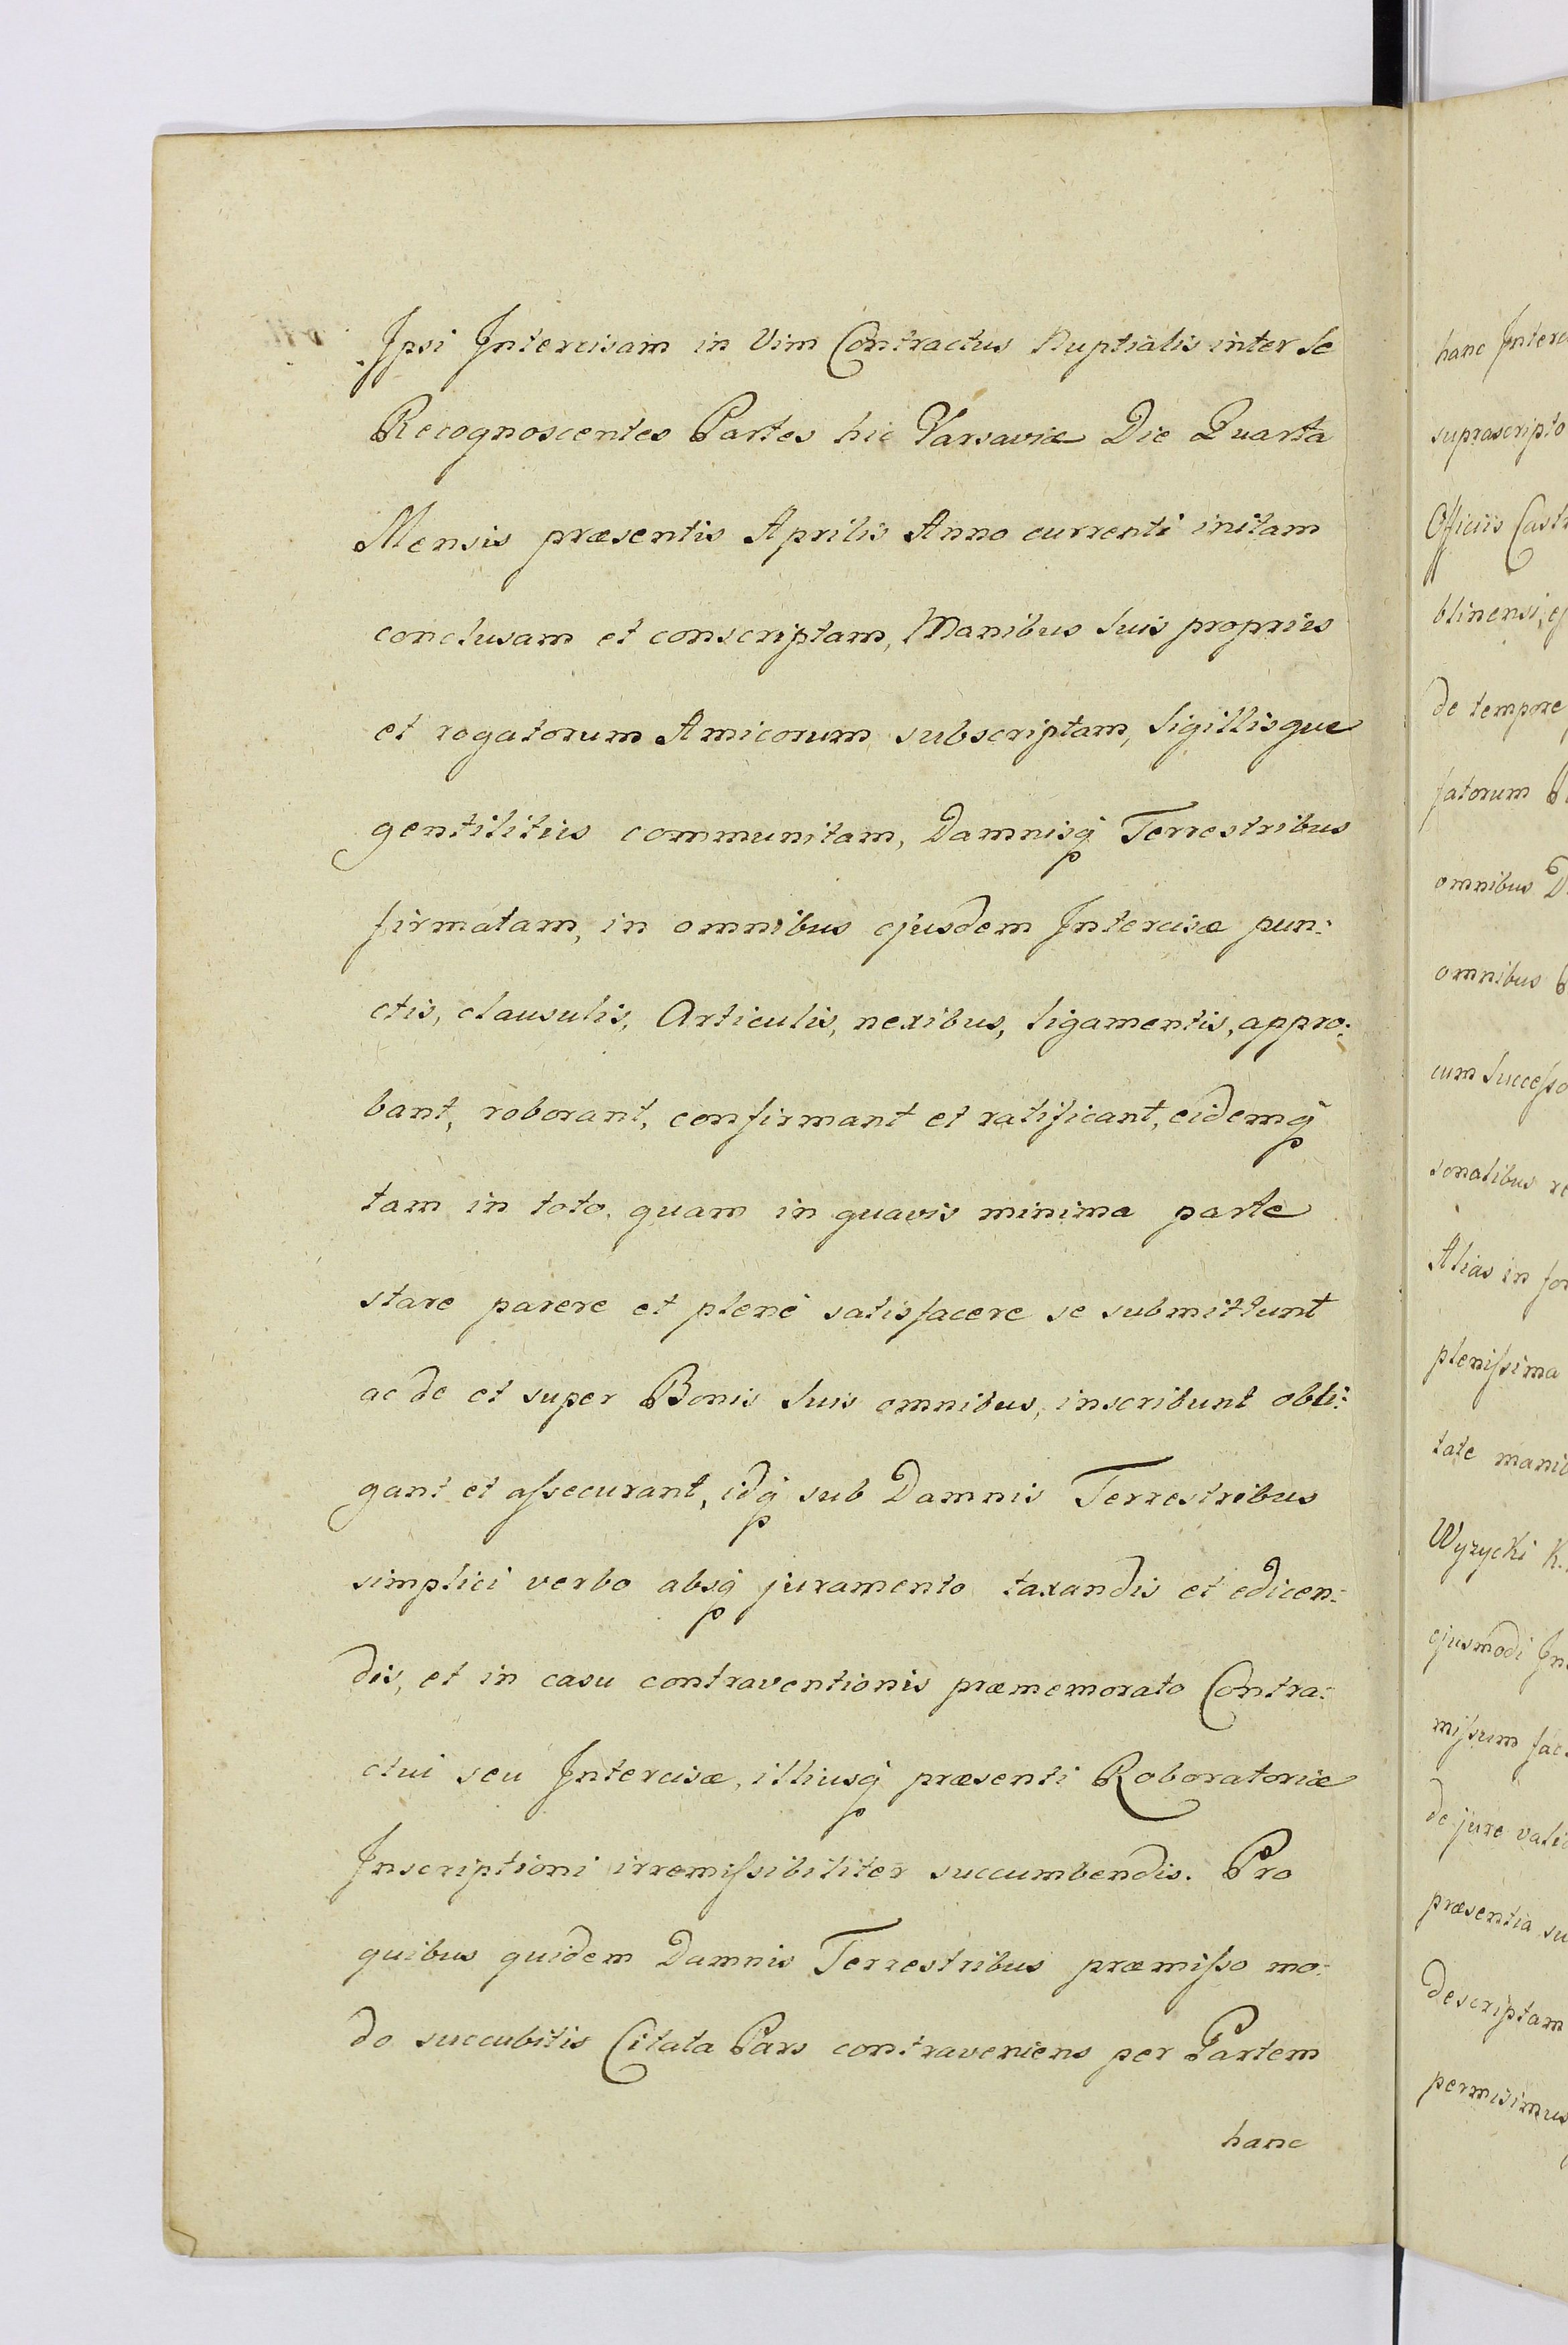 Ipsi Intercisam in Vim Contractus Nuptialis inter Se
Recognoscentes Partes hic Varsaviæ Die Quarta
Mensis præsentis Aprilis Anno currenti initam
conclusam et conscriptam, Manibus Suis propriis
et rogatorum Amicorum subscriptam, Sigillisque
gentilitiis communitam, Damnisq Terrestribus
firmatam, in omnibus ejusdem Intercisæ pun:
ctis, clausulis, Articulis, nexibus, ligamentis, appro:
bant, roborant, confirmant et ratificant, eidemq
tam in toto, quam in quavis minima parte
stare parere et plenè satisfacere se submittunt
ac de et super Bonis Suis omnibus, inscribunt obli:
gant et aſsecurant, idq sub Damnis Terrestribus
simplici verbo absq juramento taxandis et edicen:
dis, et in casu contraventionis præmemorato Contra:
ctui seu Intercisæ, illiusq præsenti Roboratoriæ
Inscriptioni irremiſsibiliter succumbendis. Pro
quibus quidem Damnis Terrestribus præmiſso mo:
do succubitis Citata Pars contraveniens per Partem
hanc
hanc
suprascripto
Officiis
blinensi,
de tempore
fatorum
omnibus
omnibus
cum
sonalibus
Alias in
pleniſsima
tate
Wyzycki K.
ejusmodi
miſsum
de jure
præsentia
descriptam
permisimus